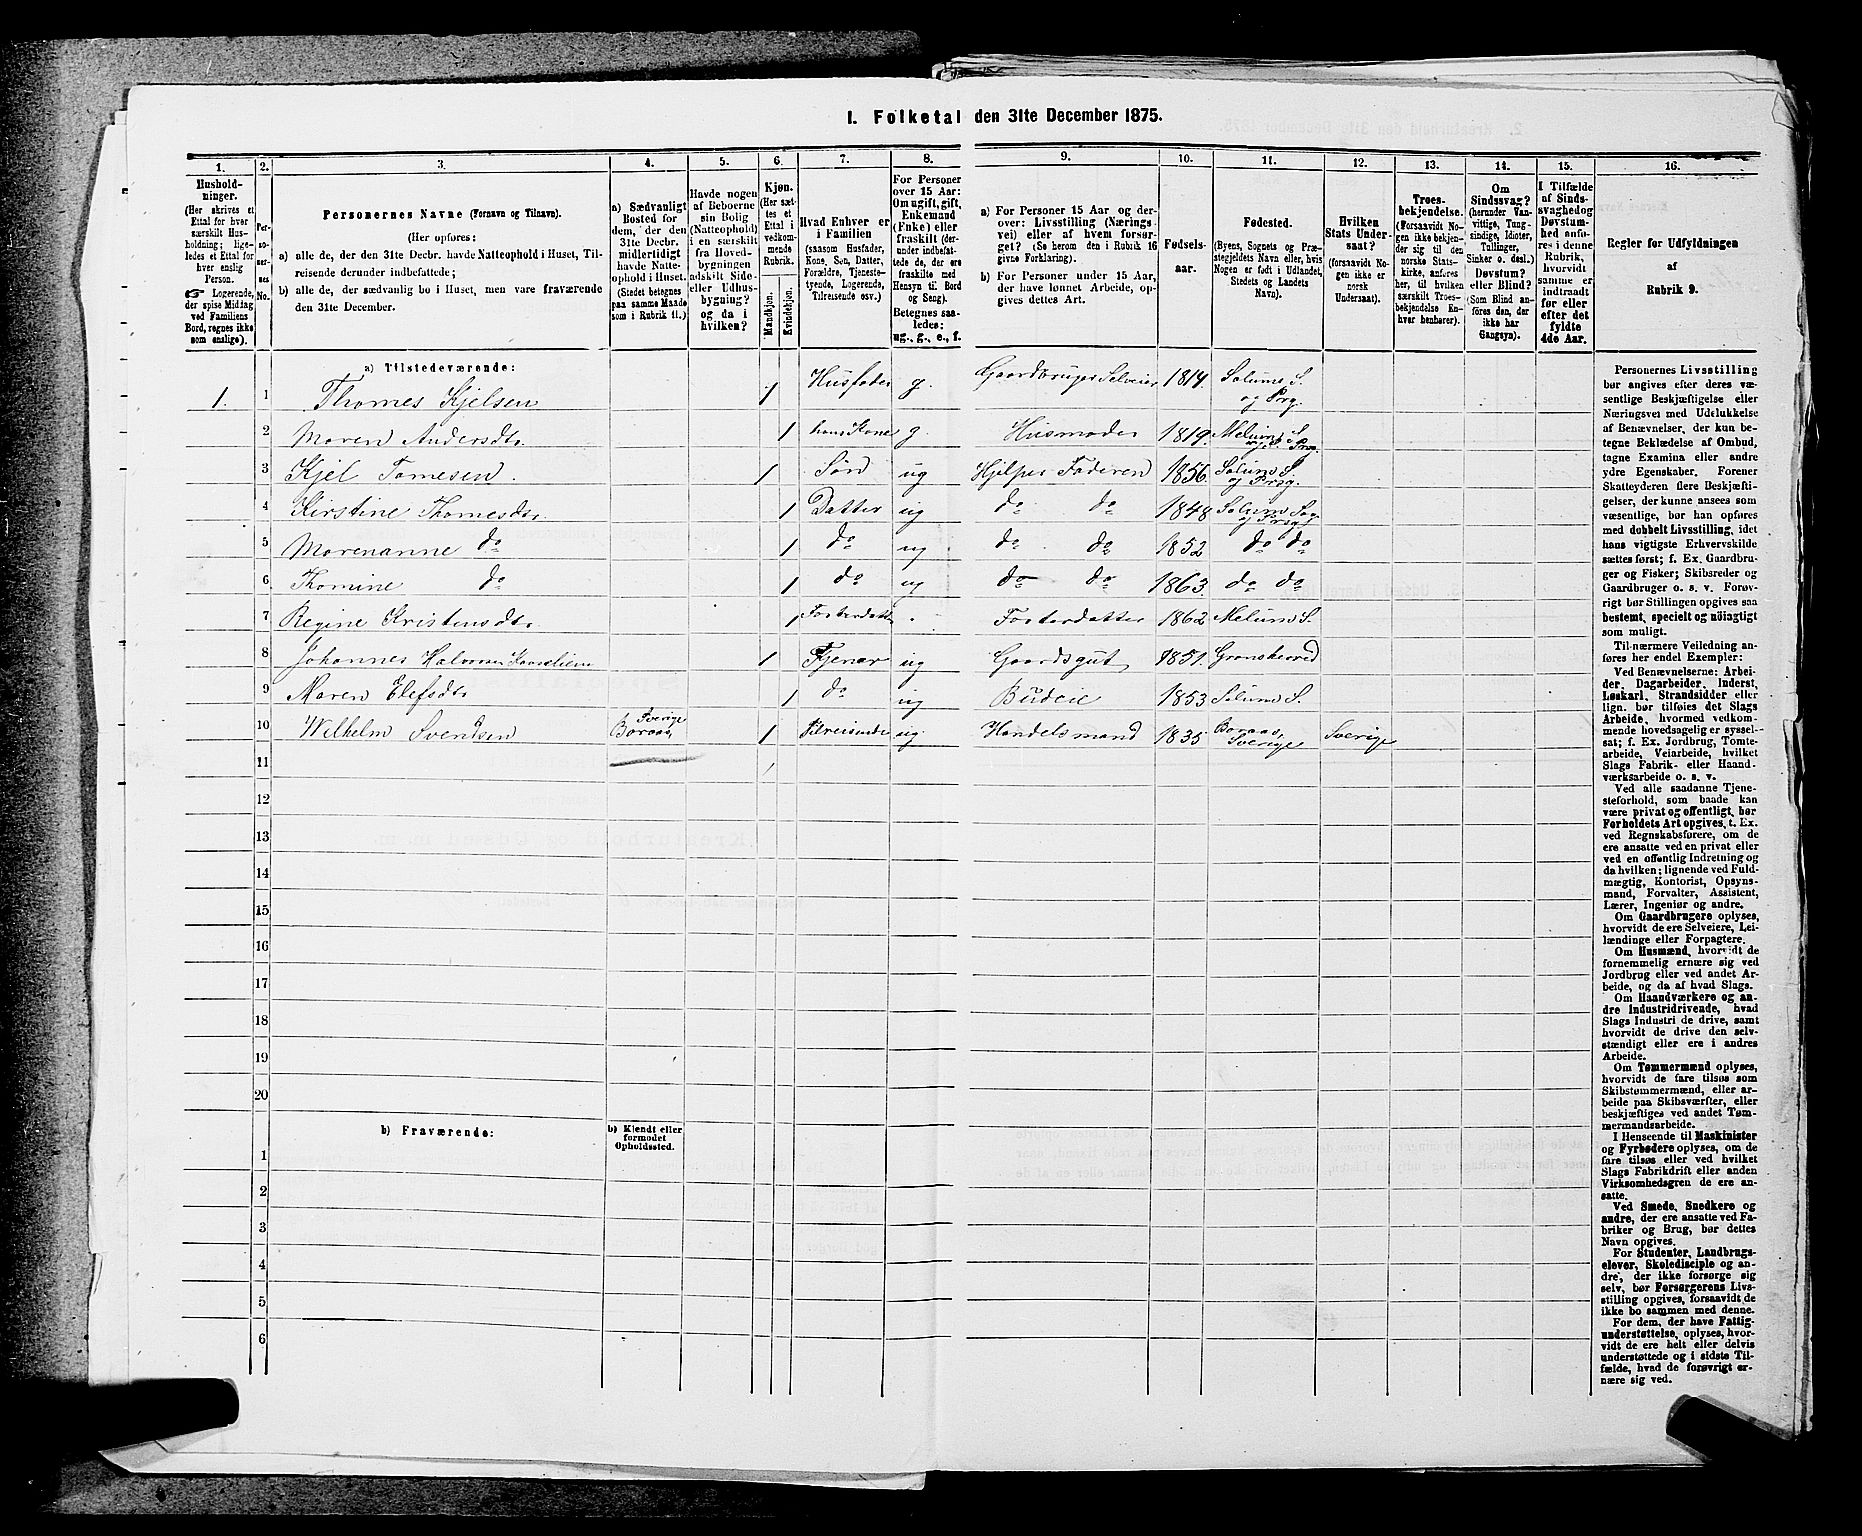 I. Folketal den 31te December 1875.
1.
Husholdninger.
(Her skrives et
Ettal for hver
særskilt Husholdning;
ligeledes et Ettal for
hver enslig
Person.
☞ Logerende,
der spise Middag
ved Familiens
Bord, regnes ikke
som enslige).
2.
Personernes No.
3.
Personernes Navne (Fornavn og Tilnavn).
(Her opføres:
a) alle de, der den 31te Decbr. havde Natteophold i Huset, Tilreisende derunder indbefattede;
b) alle de, der sædvanlig bo i Huset, men vare fraværende
den 31te December.
4.
a) Sædvanligt
Bosted for
dem, der den
31te Decbr.
midlertidigt
havde Natteophold i Huset.
(Stedet betegnes
paa samme Maade
som i Rubrik 11.)
5.
Havde nogen
af Beboerne
sin Bolig
(Natteophold)
i en særskilt
fra Hovedbygningen
adskilt Side- eller Udhusbygning?
og da i
hvilken?
6.
Kjøn.
(Her sættes et
Ettal i
vedkommende
Rubrik.)
Mandkjøn.
Kvindekjøn.
7.
Hvad Enhver er
i Familien
(saasom Husfader,
Kone, Søn, Datter,
Forældre, Tjenestetyende, Logerende,
Tilreisende osv.)
8.
For Personer
over 15 Aar:
Om ugift, gift,
Enkemand
(Enke) eller
fraskilt (derunder indbefattede, de ere
fraskilte med
Hensyn til Bord
og Seng).
Betegnes saaledes:
ug., g., e., f.
9.
a) For Personer 15 Aar og derover: Livsstilling (Næringsvei) eller af hvem forsørget? (Se herom den i Rubrik 16
givne Forklaring).
b) For Personer under 15 Aar,
der have lønnet Arbeide, opgives dettes Art.
10.
Fødselsaar.
11.
Fødested.
(Byens, Sognets og Præstegjeldets Navn eller, hvis
Nogen er født i Udlandet,
Stedets og Landets
Navn).
12.
Hvilken
Stats Undersaat?
(forsaavidt Nogen ikke er
norsk
Undersaat).
13.
Troesbekjendelse.
(Forsaavidt Nogen ikke bekjender sig til den
norske Statskirke, anføres
her, til hvilken
særskilt Troesbekjendelse Enhver henhører).
14.
Om
Sindssvag?
(herunder Vanvittige, Tungsindige, Idioter,
Tullinger,
Sinker o. desl.)
Døvstum?
eller Blind?
(Som Blind anføres den, der
ikke har
Gangsyn).
15.
I Tilfælde
af Sindssvaghed og
Døvstumhed anføres i denne
Rubrik,
hvorvidt
samme er
indtraadt
før eller
efter det
fyldte
4de Aar.
16.
Regler for Udfyldningen
af
Rubrik 9.
a) Tilstedeværende:
1. 1 Thomes Kjelsen 1 Husfader g. Gaardbruger Selveier 1814 Solume S. og Prg.
2 Maren Andersdtr 1 hans Kone g. Husmoder 1819. Melum S. og Prg.
3 Kjel Tomesen. 1 Sön ug Hjelper Faderen 1856. Solum S. og Prsg.
4 Kirstine Thomesdtr. 1 Datter ug do do 1848 Solum Sog. og Prsg.
5 Marenanne do 1 do ug do do 1852 do do
6 Thomine do 1 do ug do do 1863. do do
7 Regine Kristensdtr. 1 Fosterdatter Fosterdatter 1862 Melum S.
8 Johannes Halvorsen 1 Tjener ug Gaardsgut 1851.
9 Maren Elefsdtr 1 do ug Büdeie 1853 Solum S.
10 Wilhelm Svendsen Boraas, Sverige 1 Tilreisende ug. Handelsmand 1835 Boraas, Sverige Sverige
11
12
13
14
15
16
17
18
19
20
b) Fraværende:
b) Kjendt eller
formodet
Opholdssted.
1
2
3
4
5
6
Personernes Livsstilling
bør angives efter deres væsentlige Beskjæftigelse eller
Næringsvei med Udelukkelse
af Benævnelser, der kun betegne Beklædelse af Ombud,
tagne Examina eller andre
ydre Egenskaber. Forener
Skatteyderen flere Beskjæftigelser, der kunne ansees som
væsentlige, bør han opføres
med dobbelt Livsstilling, idet
hans vigtigste Erhvervskilde
sættes først; f. Ex. Gaardbruger og Fisker; Skibsreder og
Gaardbruger o. s. v. Forøvrigt bør Stillingen opgives saa
bestemt, specielt og nøiagtigt
som muligt.
Til nærmere Veiledning anføres her endel Exempler:
Ved Benævnelserne: Arbeider, Dagarbeider, Inderst,
Løskarl, Strandsidder eller
lign. bør tilføies det Slags
Arbeide, hvormed vedkommende hovedsagelig er sysselsat; f. Ex. Jordbrug, Tomtearbeide, Veiarbeide, hvilket
Slags Fabrik- eller Haandværksarbeide o. s. v.
Ved alle saadanne Tjenesteforhold, som baade kan
være privat og offentligt, bør
Forholdets Art opgives, t. Ex.
ved Regnskabsførere, om de
ere ansatte ved en privat eller
ved en offentlig Indretning og
da hvilken; lignende ved Fuldmægtig, Kontorist, Opsynsmand, Forvalter, Assistent,
Lærer, Ingeniør og andre.
Om Gaardbrugere oplyses,
hvorvidt de ere Selveiere, Leilændinge eller Forpagtere.
Om Husmænd, hvorvidt de
fornemmelig ernære sig ved
Jordbrug eller ved andet Arbeide, og da af hvad Slags.
Om Haandværkere og andre Industridrivende, hvad
Slags Industri de drive, samt
hvorvidt de drive den selvstændigt eller ere i andres
Arbeide.
Om Tømmermænd oplyses,
hvorvidt de fare tilsøs som
Skibstømmermænd, eller arbeide paa Skibsværfter, eller
beskjæftiges ved andet Tømmermandsarbeide.
I Henseende til Maskinister
og Fyrbødere oplyses, om de
fare tilsøs eller ved hvilket
Slags Fabrikdrift eller anden
Virksomhedsgren de ere ansatte.
Ved Smede, Snedkere og
andre, der ere ansatte ved Fabriker og Brug, bør dettes
Navn opgives.
For Studenter, Landbrugselever, Skoledisciple og andre, der ikke forsørge sig
selv, bør Forsørgerens Livsstilling opgives, forsaavidt de
ikke bo sammen med denne.
For dem, der have Fattigunderstøttelse, oplyses, hvorvidt de ere helt eller delvis
understøttede og i sidste Tilfælde, hvad de forøvrigt ernære sig ved.